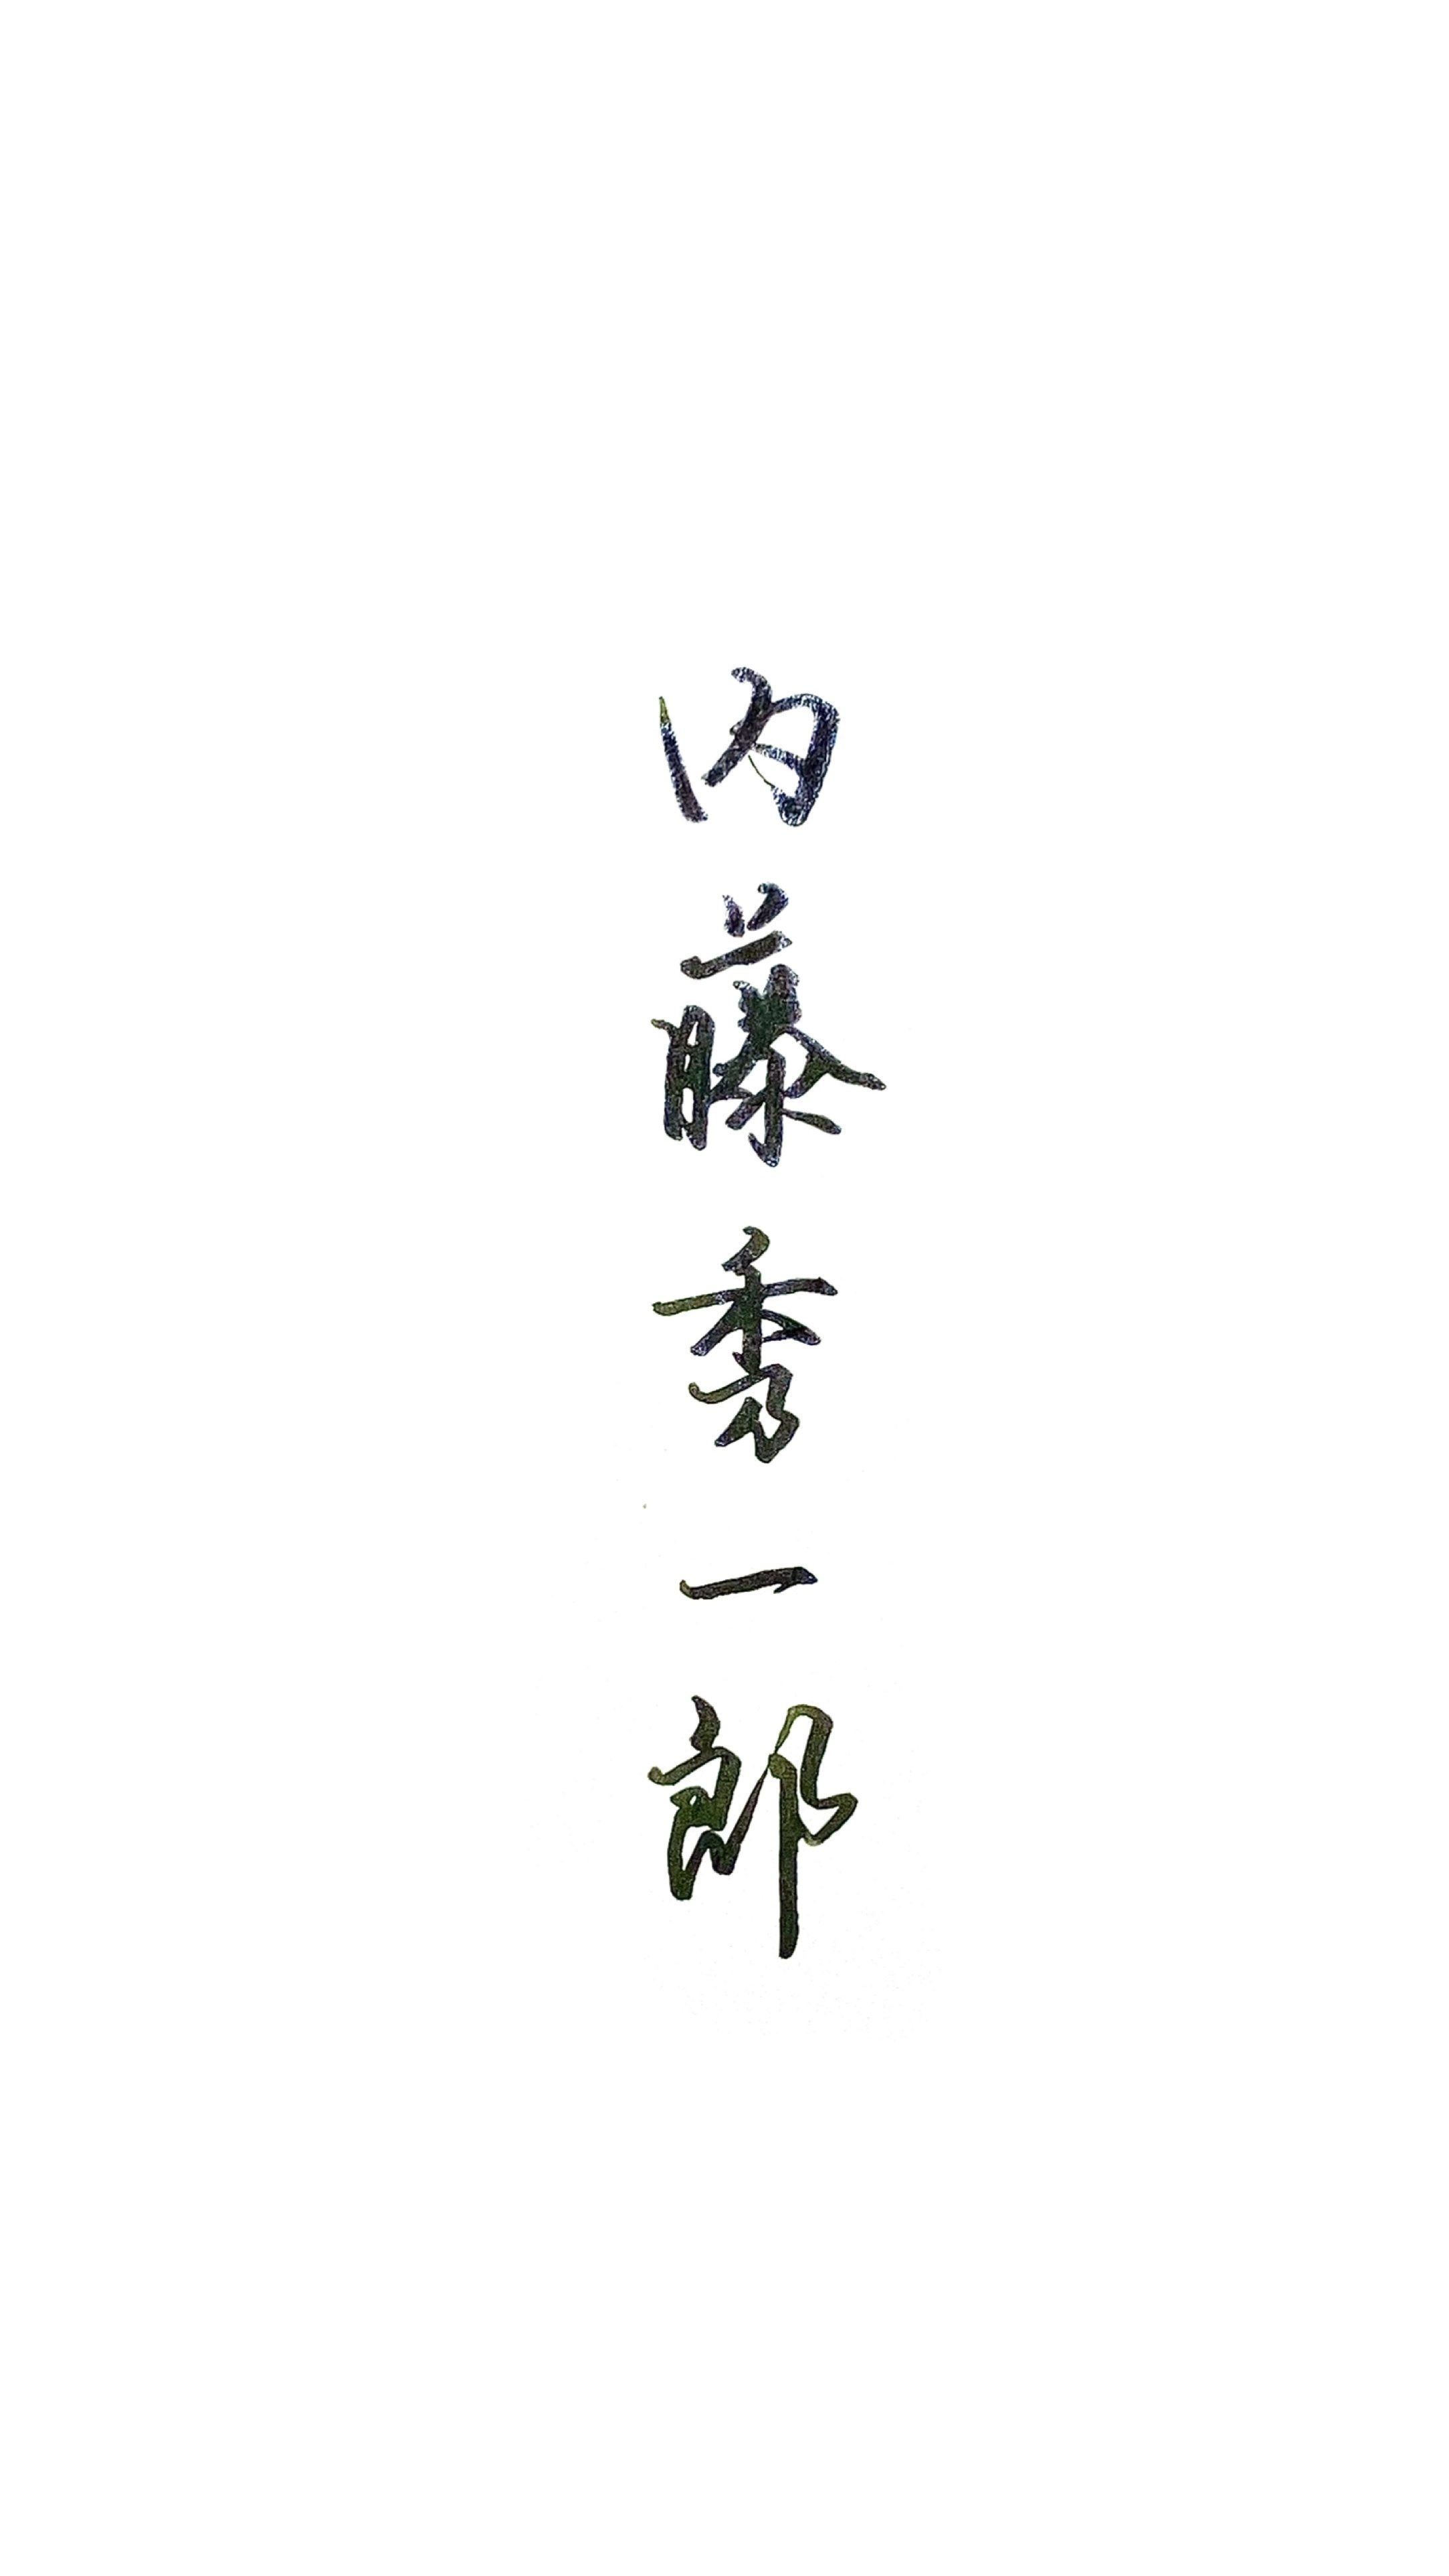 内藤秀一郎